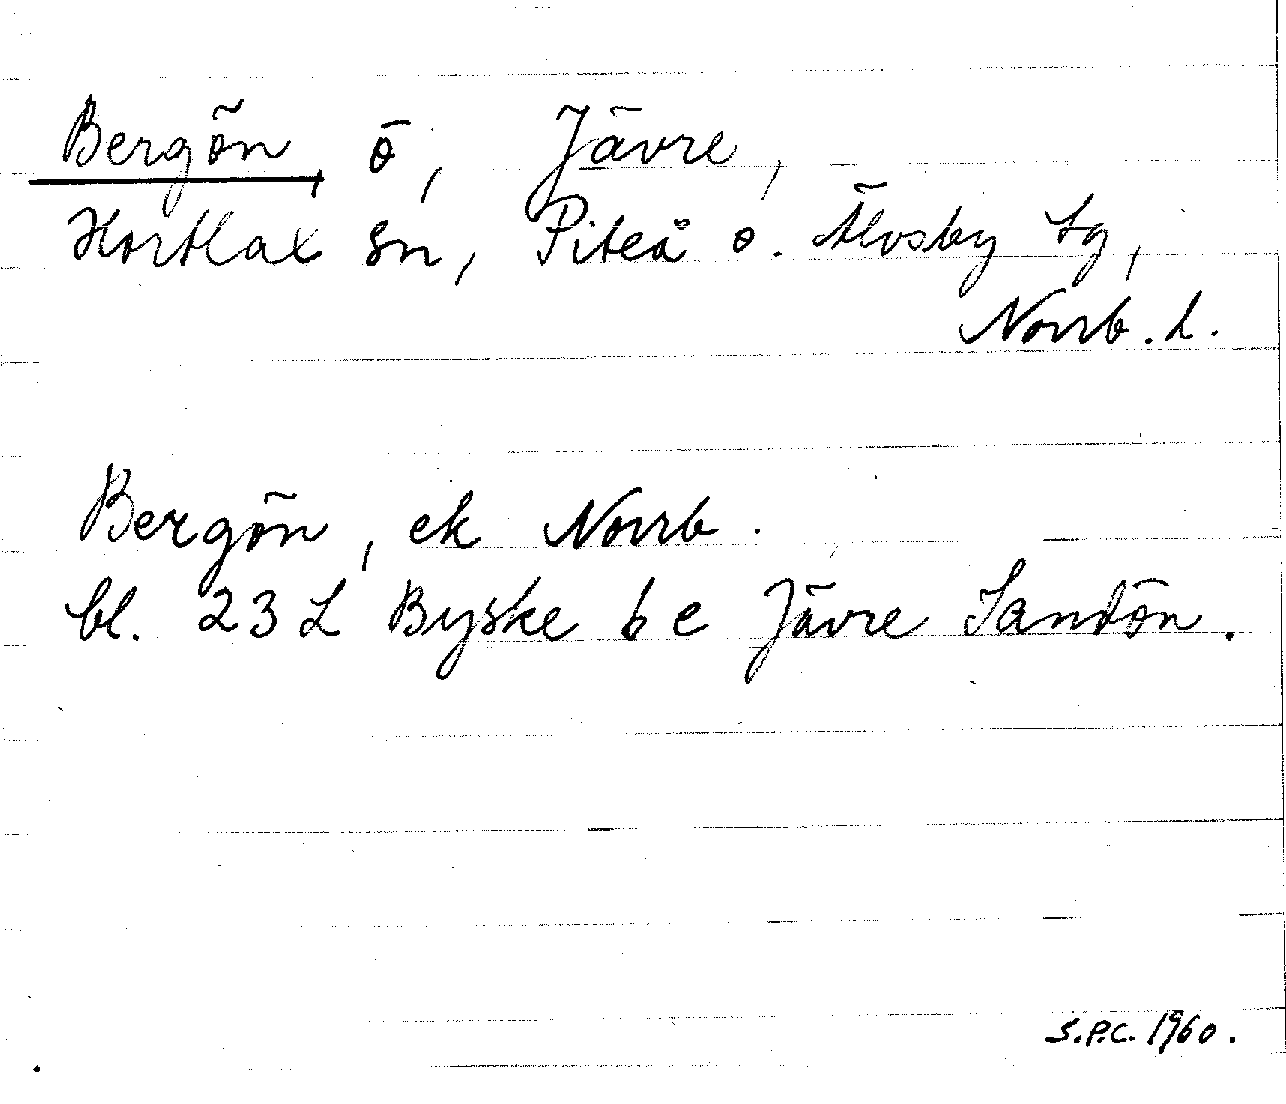 Bergön, ö, Jävre,
Hortlax sn, Piteå o. Älvsby tg,
Norrb. l.
Bergön, ek Norrb.
bl. 23 L Byske b e Jävre Sandön.
S.P.C. 1960.